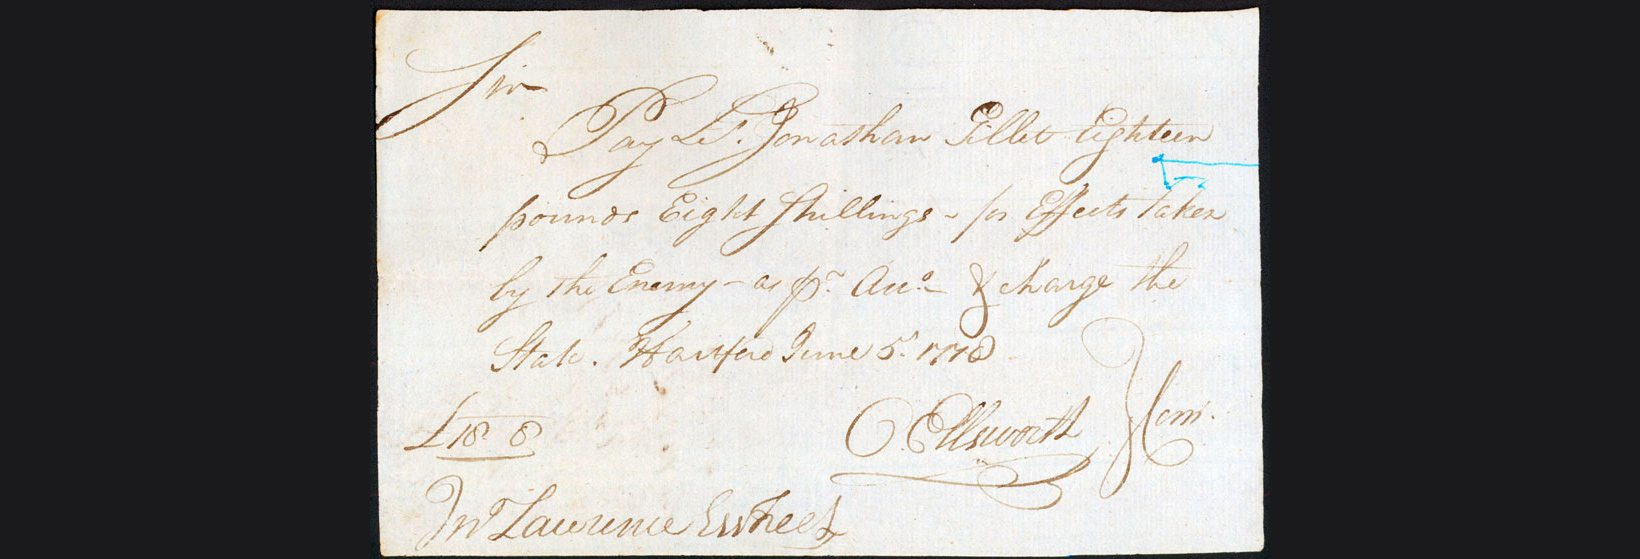 Sir
Pay Lt. Jonathan Gillet Eighteen
pounds Eight Shillings - for Effects Taken
by the Enemy - as pr. Acco. - & charge the
State. Hartford June 5. 1778
£18 8
O. Ellsworth } Com.
Jno Lawrence Esqr